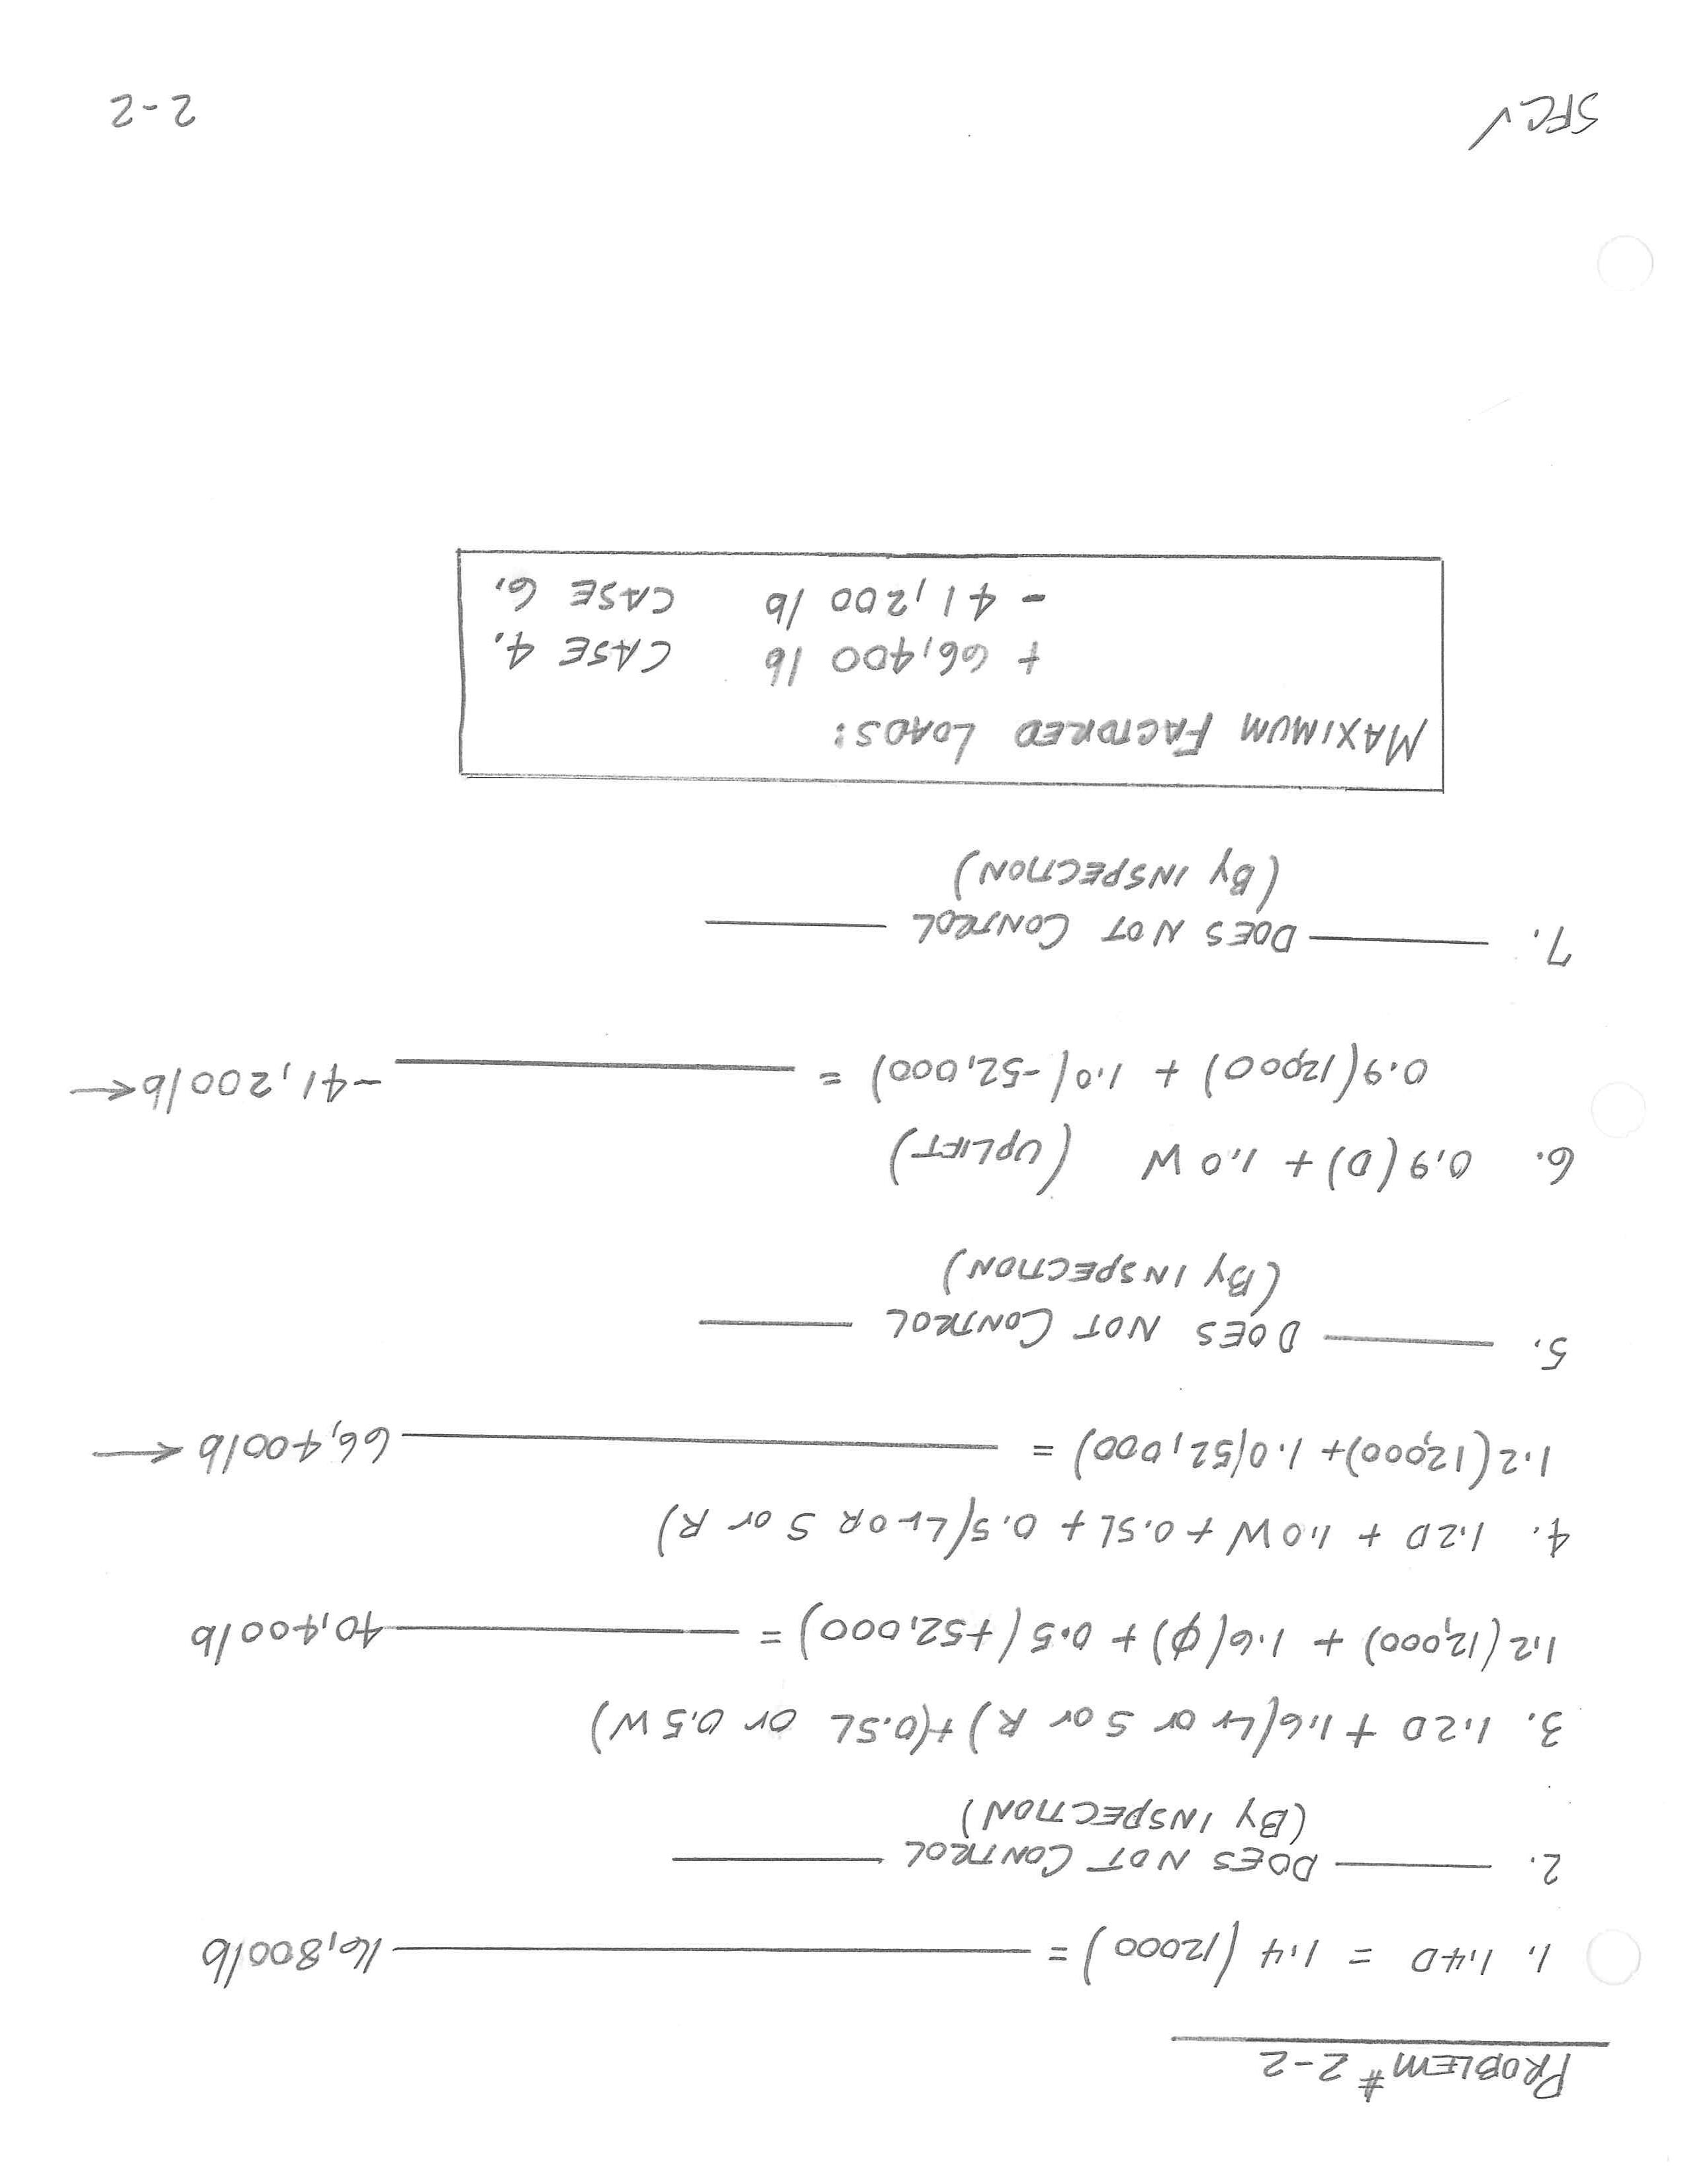 PROBLEM # 2-2
1. 1.4D = 1.4 (12000) = 16,800 lb
2. DOES NOT CONTROL
(BY INSPECTION)
3. 1.2D + 1.6(Lr or S or R) + (0.5L or 0.5W)
1.2(12,000) + 1.6(ϕ) + 0.5(+52,000) = 40,400 lb
4. 1.2D + 1.0W + 0.5L + 0.5(Lr OR S or R)
1.2(12,000) + 1.0(52,000) = 66,400 lb ←
5. DOES NOT CONTROL
(BY INSPECTION)
6. 0.9(D) + 1.0W (UPLIFT)
0.9(12,000) + 1.0(-52,000) = -41,200 lb ←
7. DOES NOT CONTROL
(BY INSPECTION)
MAXIMUM FACTORED LOADS:
+ 66,400 lb CASE 4.
- 41,200 lb CASE 6.
SFC ✓ 2-2